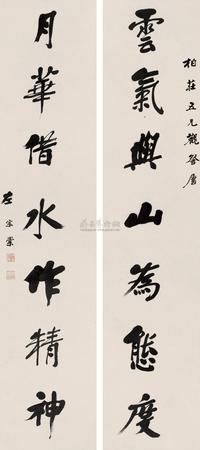 柏莊五兄觀詧屬
雲氣與山為態度
月華借水作精神
左宗棠